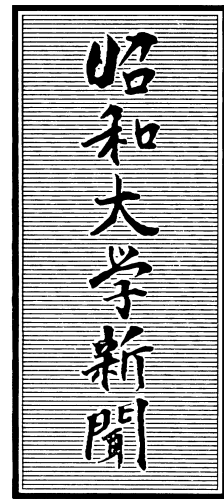 昭和大学新聞